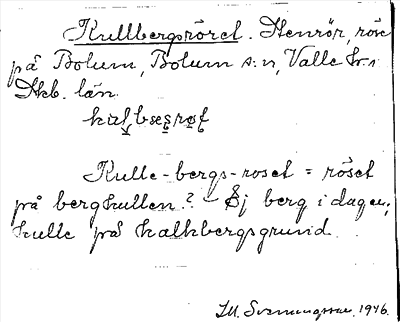 Kullbergsröret. Stenrör, röse
på Bolum, Bolum s:n, Valle hd:
Skb. län.
Kulle-bergs-roset = röset
på bergkullen? – Ej berg i dagen,
kulle på kalkbergsgrund.
1946.